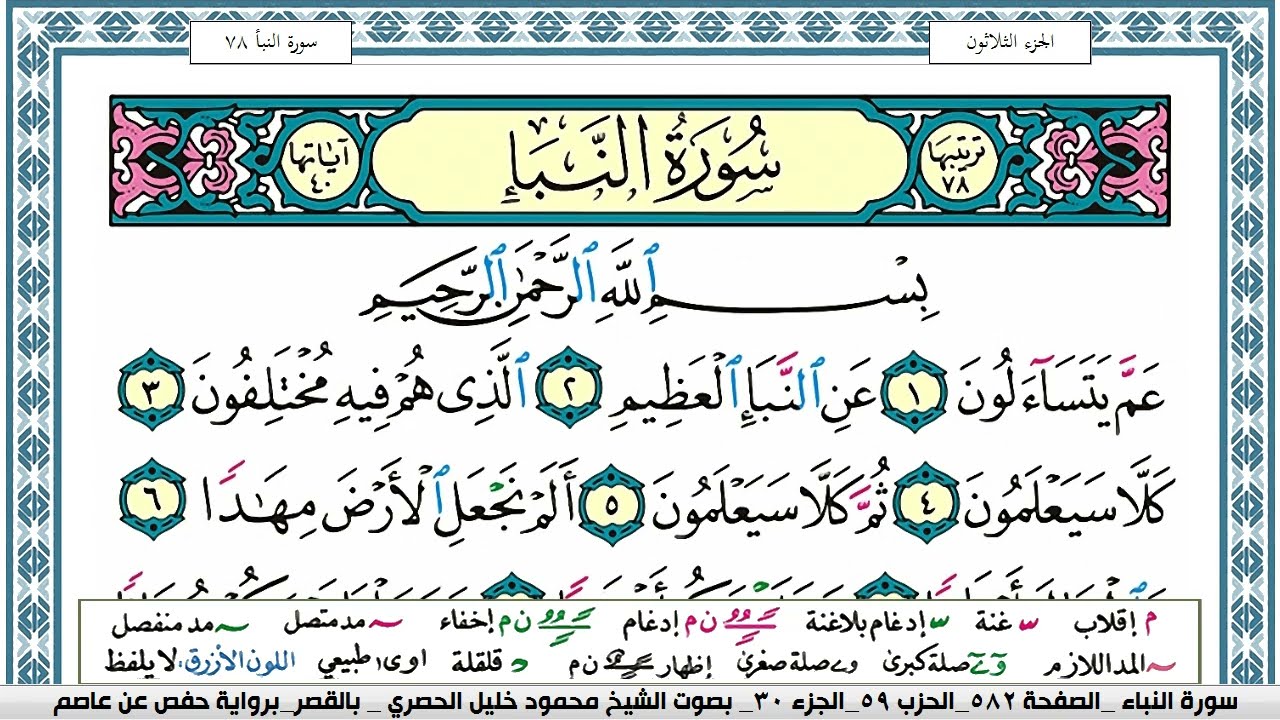 الجزء الثلاثون
سورة النبأ ٧٨
ترتيبها ٧٨
سُورَةُ النَّبَإِ
آيَاتُهَا ٤٠
بِسْمِ ٱللَّهِ ٱلرَّحْمَٰنِ ٱلرَّحِيمِ
عَمَّ يَتَسَآءَلُونَ ١ عَنِ ٱلنَّبَإِ ٱلْعَظِيمِ ٢ ٱلَّذِى هُمْ فِيهِ مُخْتَلِفُونَ ٣
كَلَّا سَيَعْلَمُونَ ٤ ثُمَّ كَلَّا سَيَعْلَمُونَ ٥ أَلَمْ نَجْعَلِ ٱلْأَرْضَ مِهَٰدًا ٦
م إقلاب غنة إدغام بلاغنة ن م إدغام ن م إخفاء مد متصل مد منفصل
المد اللازم صلة كبرى صلة صغرى إظهار ن م قلقلة اوى، طبيعي اللون الأزرق، لا يلفظ
سورة النباء _الصفحة ٥٨٢_الحزب ٥٩_الجزء ٣٠_ بصوت الشيخ محمود خليل الحصري _ بالقصر_برواية حفص عن عاصم